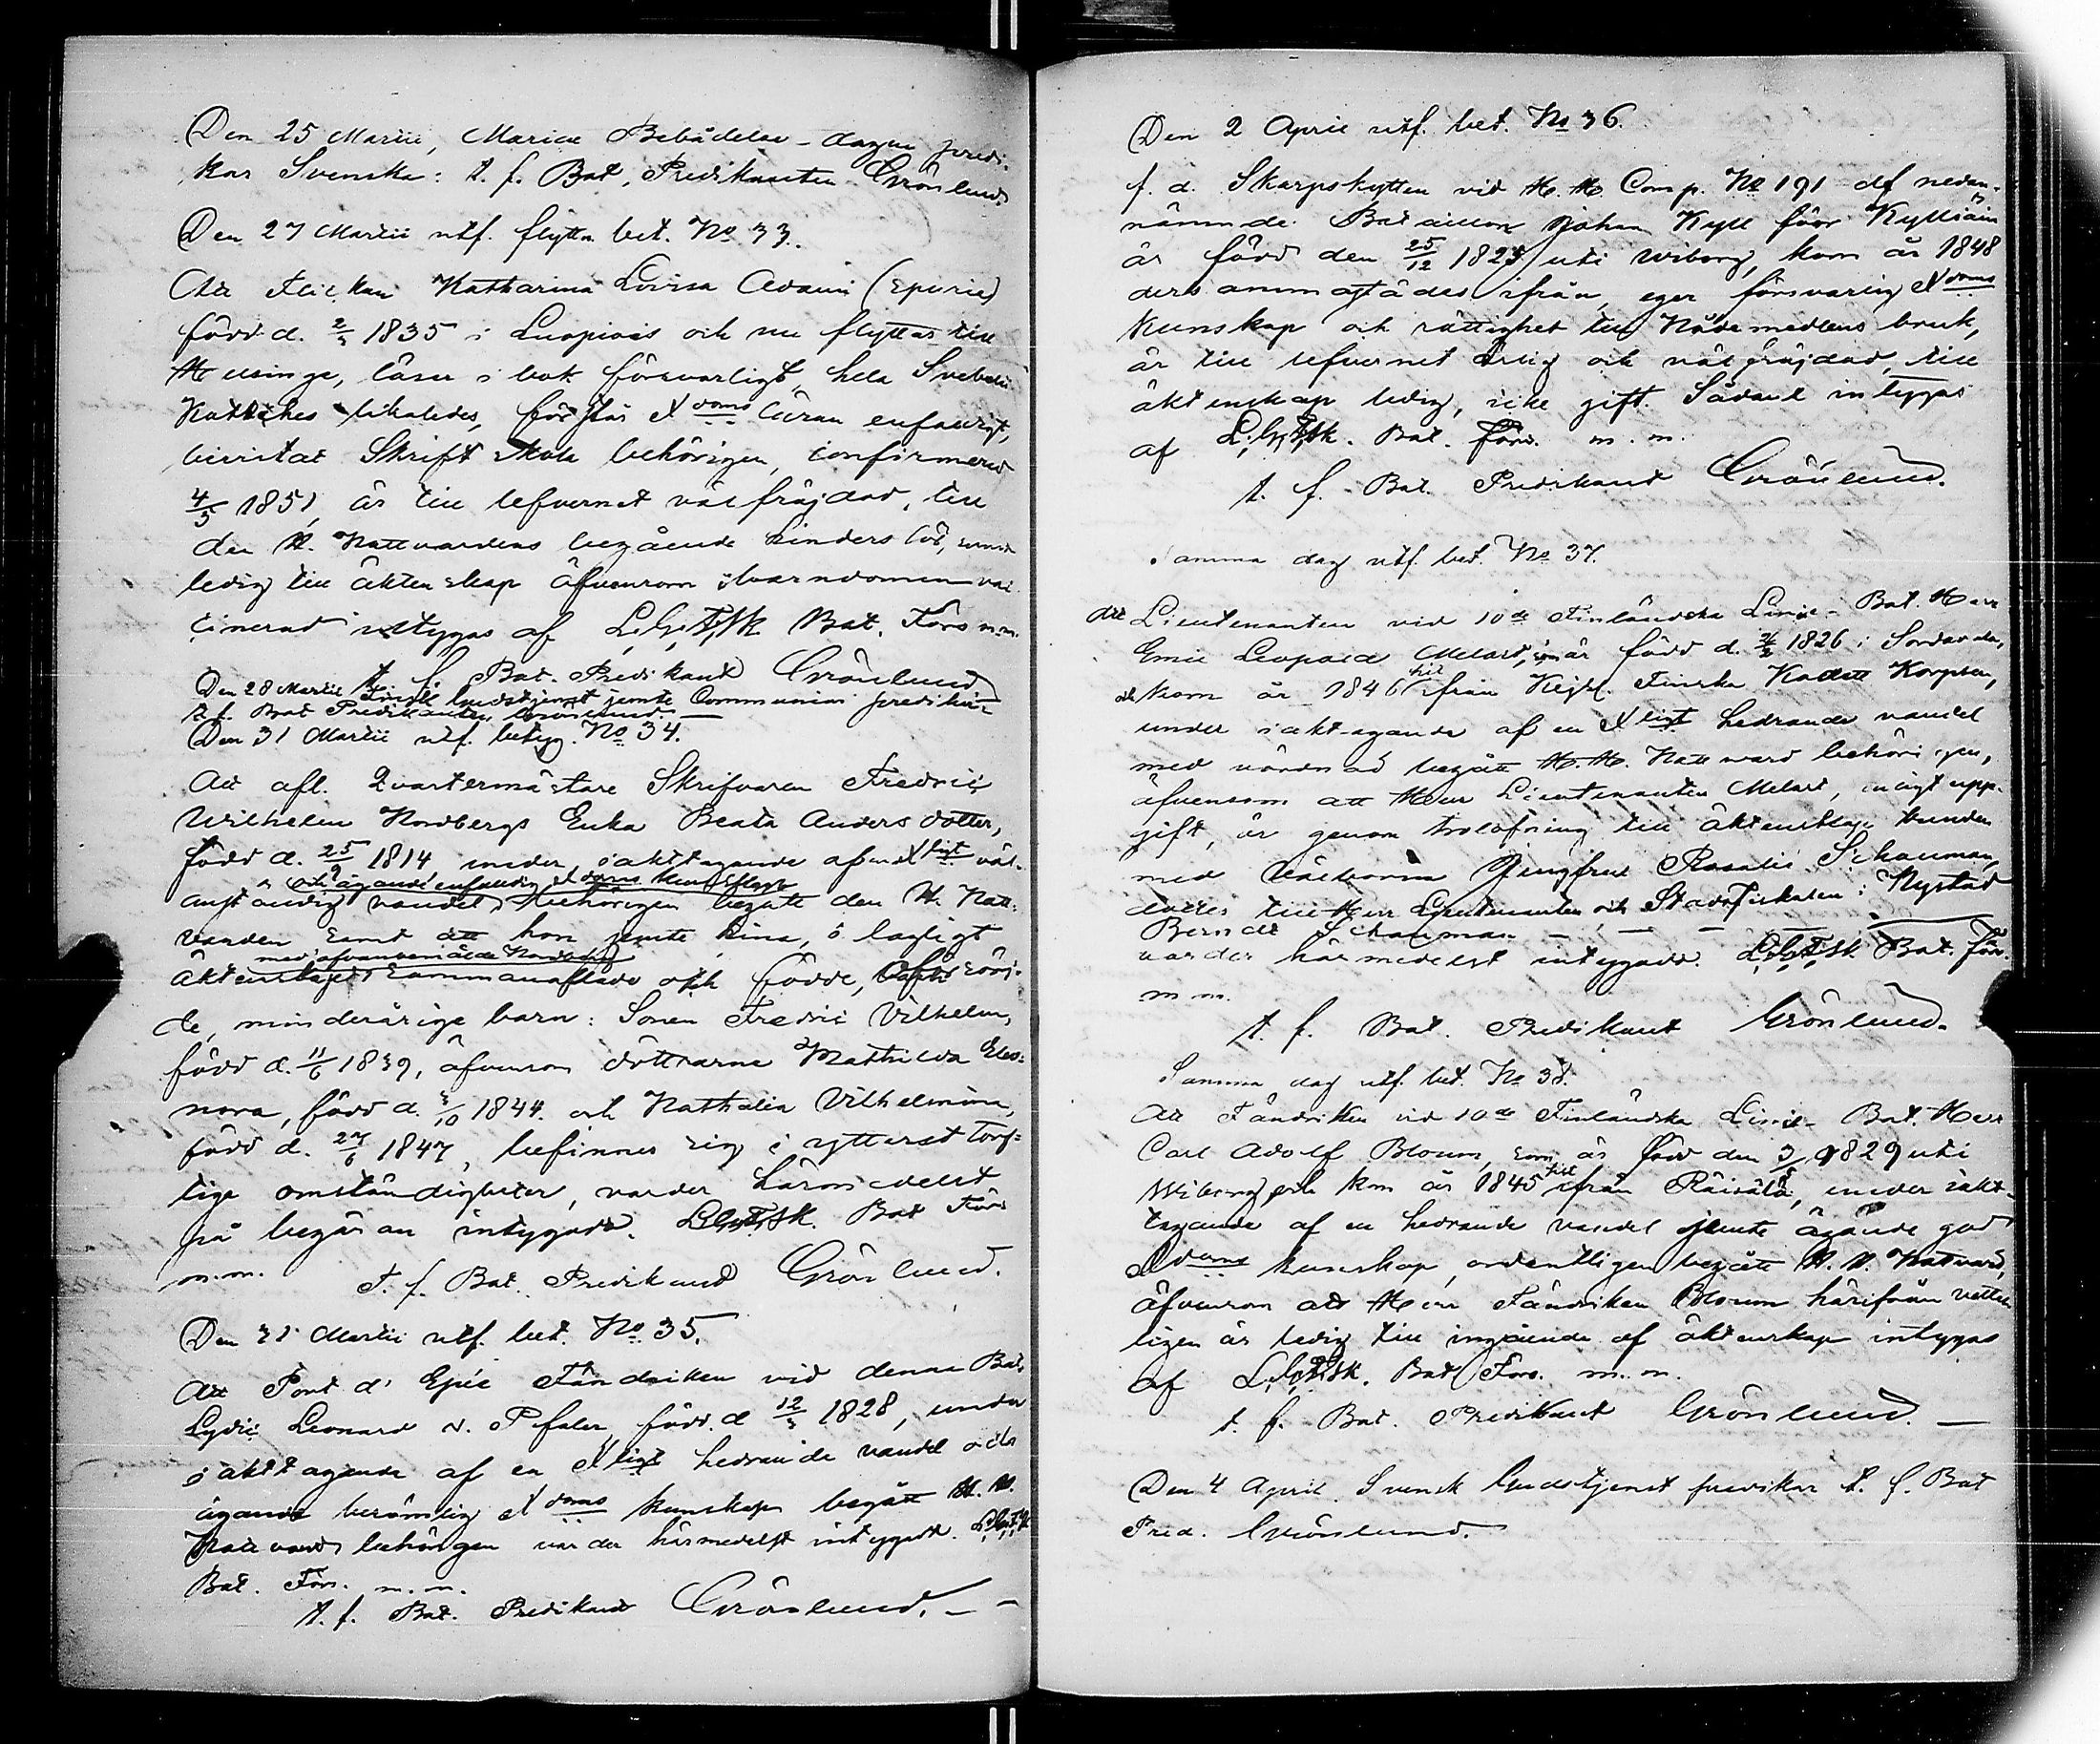 Den 25 Martii, Mariæ Bebådelse-dagen predi-
kar Svenska: t. f. Bat. Predikanten Grönlund
Den 27 Martii utf. flyttn. bet. No 33.
Att Flickan Katharina Lovisa Adami (Epirie)
född d. 2/3 1835 i Luopiois och nu flyttar till
Helsinge, läser i bok försvarligt, hela Svebelii
Katches likaledes, förstår Xdoms läran enfaldigt,
bevistat Skriftskola behörigen, confirmerad
4/5 1851, är till lefvernet välfräjdad, till
den H. Nattvardens begående hinderslös, samt
ledig till äktenskap äfvensom i barndomen vac-
cinerad intygas af L. G. F. Sk Bat. Förs m.m.
t. f. Bat. Predikant Grönlund
Den 28 Martii Finsk Gudstjenst jemte Communion predikar
t. f. Bat Predikanten Grönlund. —
Den 31 Martii utf. betyg. No 34.
Att afl. Qvartermästare Skrifvaren Fredric
Wilhelm Nordbergs Enka Beata Andersdotter,
född d. 25/9 1814 under iakttagande af en Xligt väl-
och ägande enfaldig Xdoms kunskap
anständig vandel, behörigen begått den H. Natt-
varden samt att hon jemte sina, i lagligt
med afvenvmälde Nordberg
äktenskap sammanaflade och födde, oförsörj-
de, minderårige barn: Sonen Fredric Vilhelm,
född d. 11/6 1839, äfvensom döttrarna Mathilda Eleo-
nora, född d. 3/10 1844. och Nathalia Vilhelmina,
född d. 27/6 1847, befinnes sig i ytterst torf-
tiga omständigheter, varder härmedelst
på begäran intygadt. L. G. F. Sk. Bat Förs
m.m. t. f. Bat. Predikant Grönlund.
Den 31 Martii utf. bet. No 35.
Att Port d' Epée Fändriken vid denna Bat.
Lydic Leonard v. Pfaler, född. d 12/3 1828, under
iakttagande af en Xligt hedrande vandel och
ägande berömlig Xdoms kunskap begått H. H.
Nattvard behörigen varder härmedelst intygadt. L. G. F. Sk
Bat. Förs. m.m.
t. f. Bat. Predikant Grönlund. — —
Den 2 April utf. bet. No 36.
f. d. Skarpskytten vid H. H. Comp. No 191 af nedan-
nämnde Bataillon Johan Kyll förr Kylliäin
är född den 25/12 1823 uti Wiborg, kom år 1848
dersammastädes ifrån, eger försvarlig Xdoms
kunskap och rättighet till Nådemedlens bruk,
är till lefvernet ärlig och välfräjdad, till
äktenskap ledig, icke gift. Sådant intygas
af L. G. F. Sk. Bat. Förs. m. m.
t. f. Bat. Predikant Grönlund.
Samma dag utf. bet. No 37.
Att Lieutenanten vid 10de Finländska Linie-Bat. Herr
Emil Leopold Melart, är född d. 1826 i Sordavala,
hit
och kom år 1846 ifrån Kejserl. Finska Kadett Korpsen,
under iakttagande af en Xligt hedrande vandel
med vördnad begått H. H. Nattvard behörigen,
äfvensom att Herr Lieutenanten Melart, enligt upp-
gift, är genom trolofning till äktenskap bunden
med välborna Jungfrun Rosalie Schauman,
dotter till Herr Lieutenanten och Stadsfiskalen i Nystad
Berndt Schauman — — — —
varder härmedelst intygadt. L. G. F. Sk Bat. Förs.
m m.
t. f. Bat. Predikant Grönlund.
Samma dag utf. bet. No 38.
Att Fändriken vid 10de Finländska Linie-Bat. Herr
Carl Adolf Bloum, som är född den 1829 uti
hit
Wiborg, och kom år 1845 ifrån Räisälä, under iakt-
tagande af en hedrande vandel jemte ägande god
Xdoms kunskap, ordentligen begått H. H. Nattvard,
äfvensom att Herr Fändriken Bloum härifrån vetter-
ligen är ledig till ingående af äktenskap intygas
af L. G. F. Sk. Bat Förs. m. m.
t. f. Bat. Predikant Grönlund. —
Den 4 April. Svensk Gudstjenst predikar t. f. Bat
Pred. Grönlund.